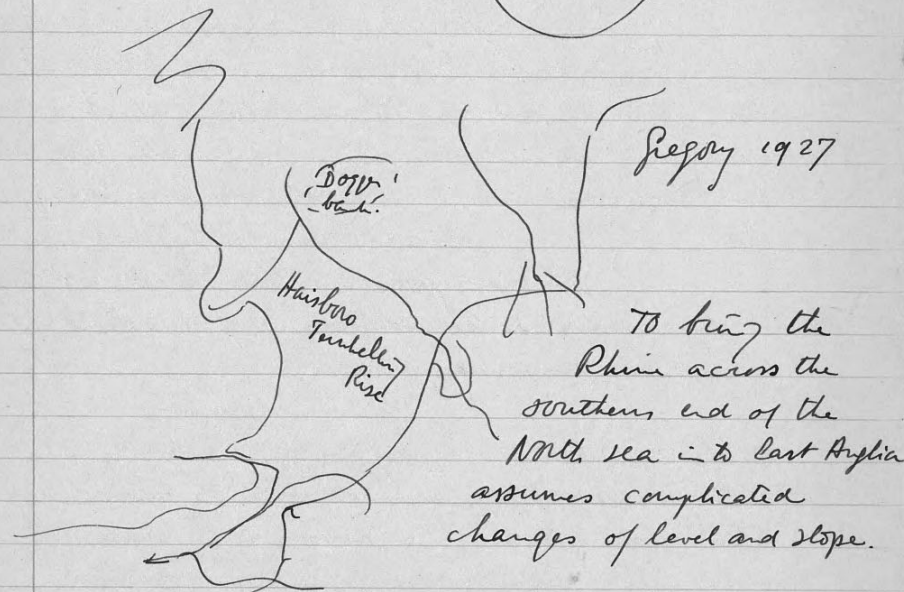 Gregory 1927
Dogger
bank
Haisboro
Terschelling
Rise
To bring the
Rhine across the
southern end of the
North sea into East Anglia
assumes complicated
changes of level and slope.